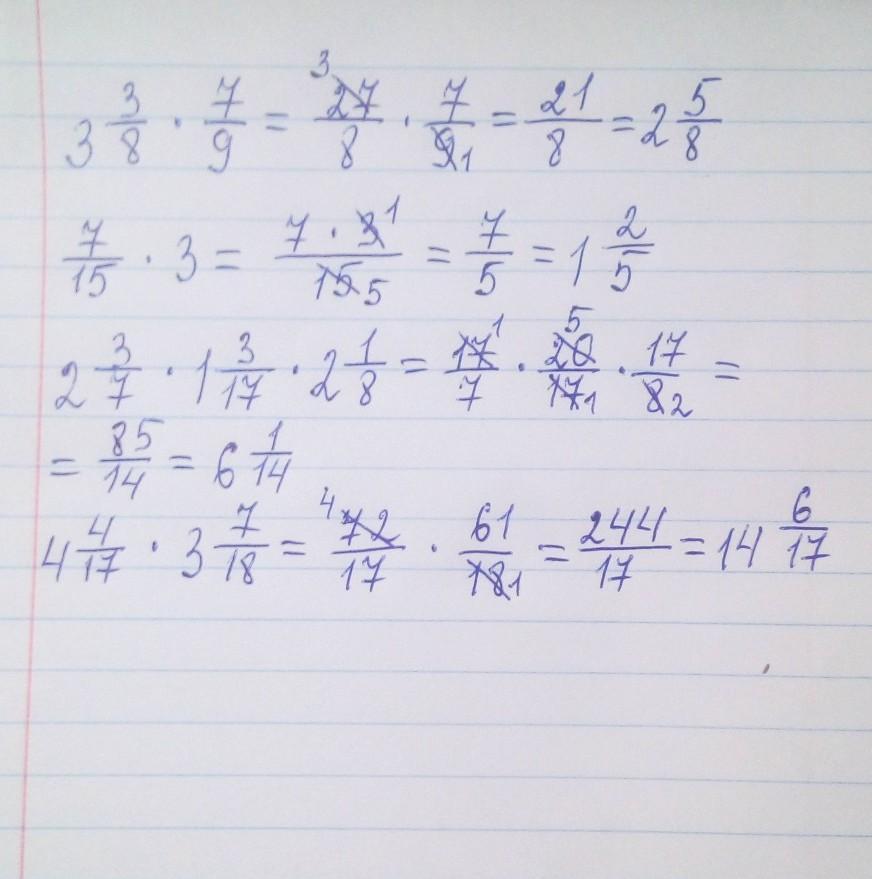 3 3/8 · 7/9 = 27 3/8 · 7/9 1 = 21/8 = 2 5/8
7/15 · 3 = 7 · 3 1/15 5 = 7/5 = 1 2/5
2 3/7 · 1 3/17 · 2 1/8 = 17 1/7 · 20 5/17 1 · 17/8 2 =
= 85/14 = 6 1/14
4 4/17 · 3 7/18 = 4 72/17 · 61/18 1 = 244/17 = 14 6/17